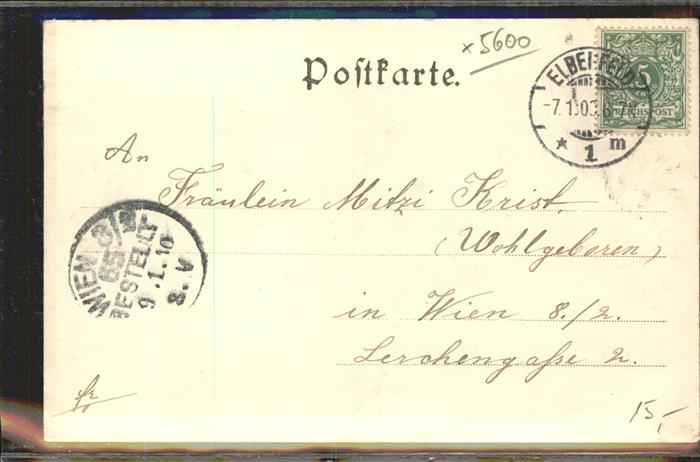 ×5600
Postkarte.
ELBERFELD
5
REICHSPOST
1 m
An
Fräulein Mitzi Krist.
(Wohlgeboren)
in Wien 8./2.
Lerchengaße 2.
WIEN 8/2
BESTELLT
8. V
15,-